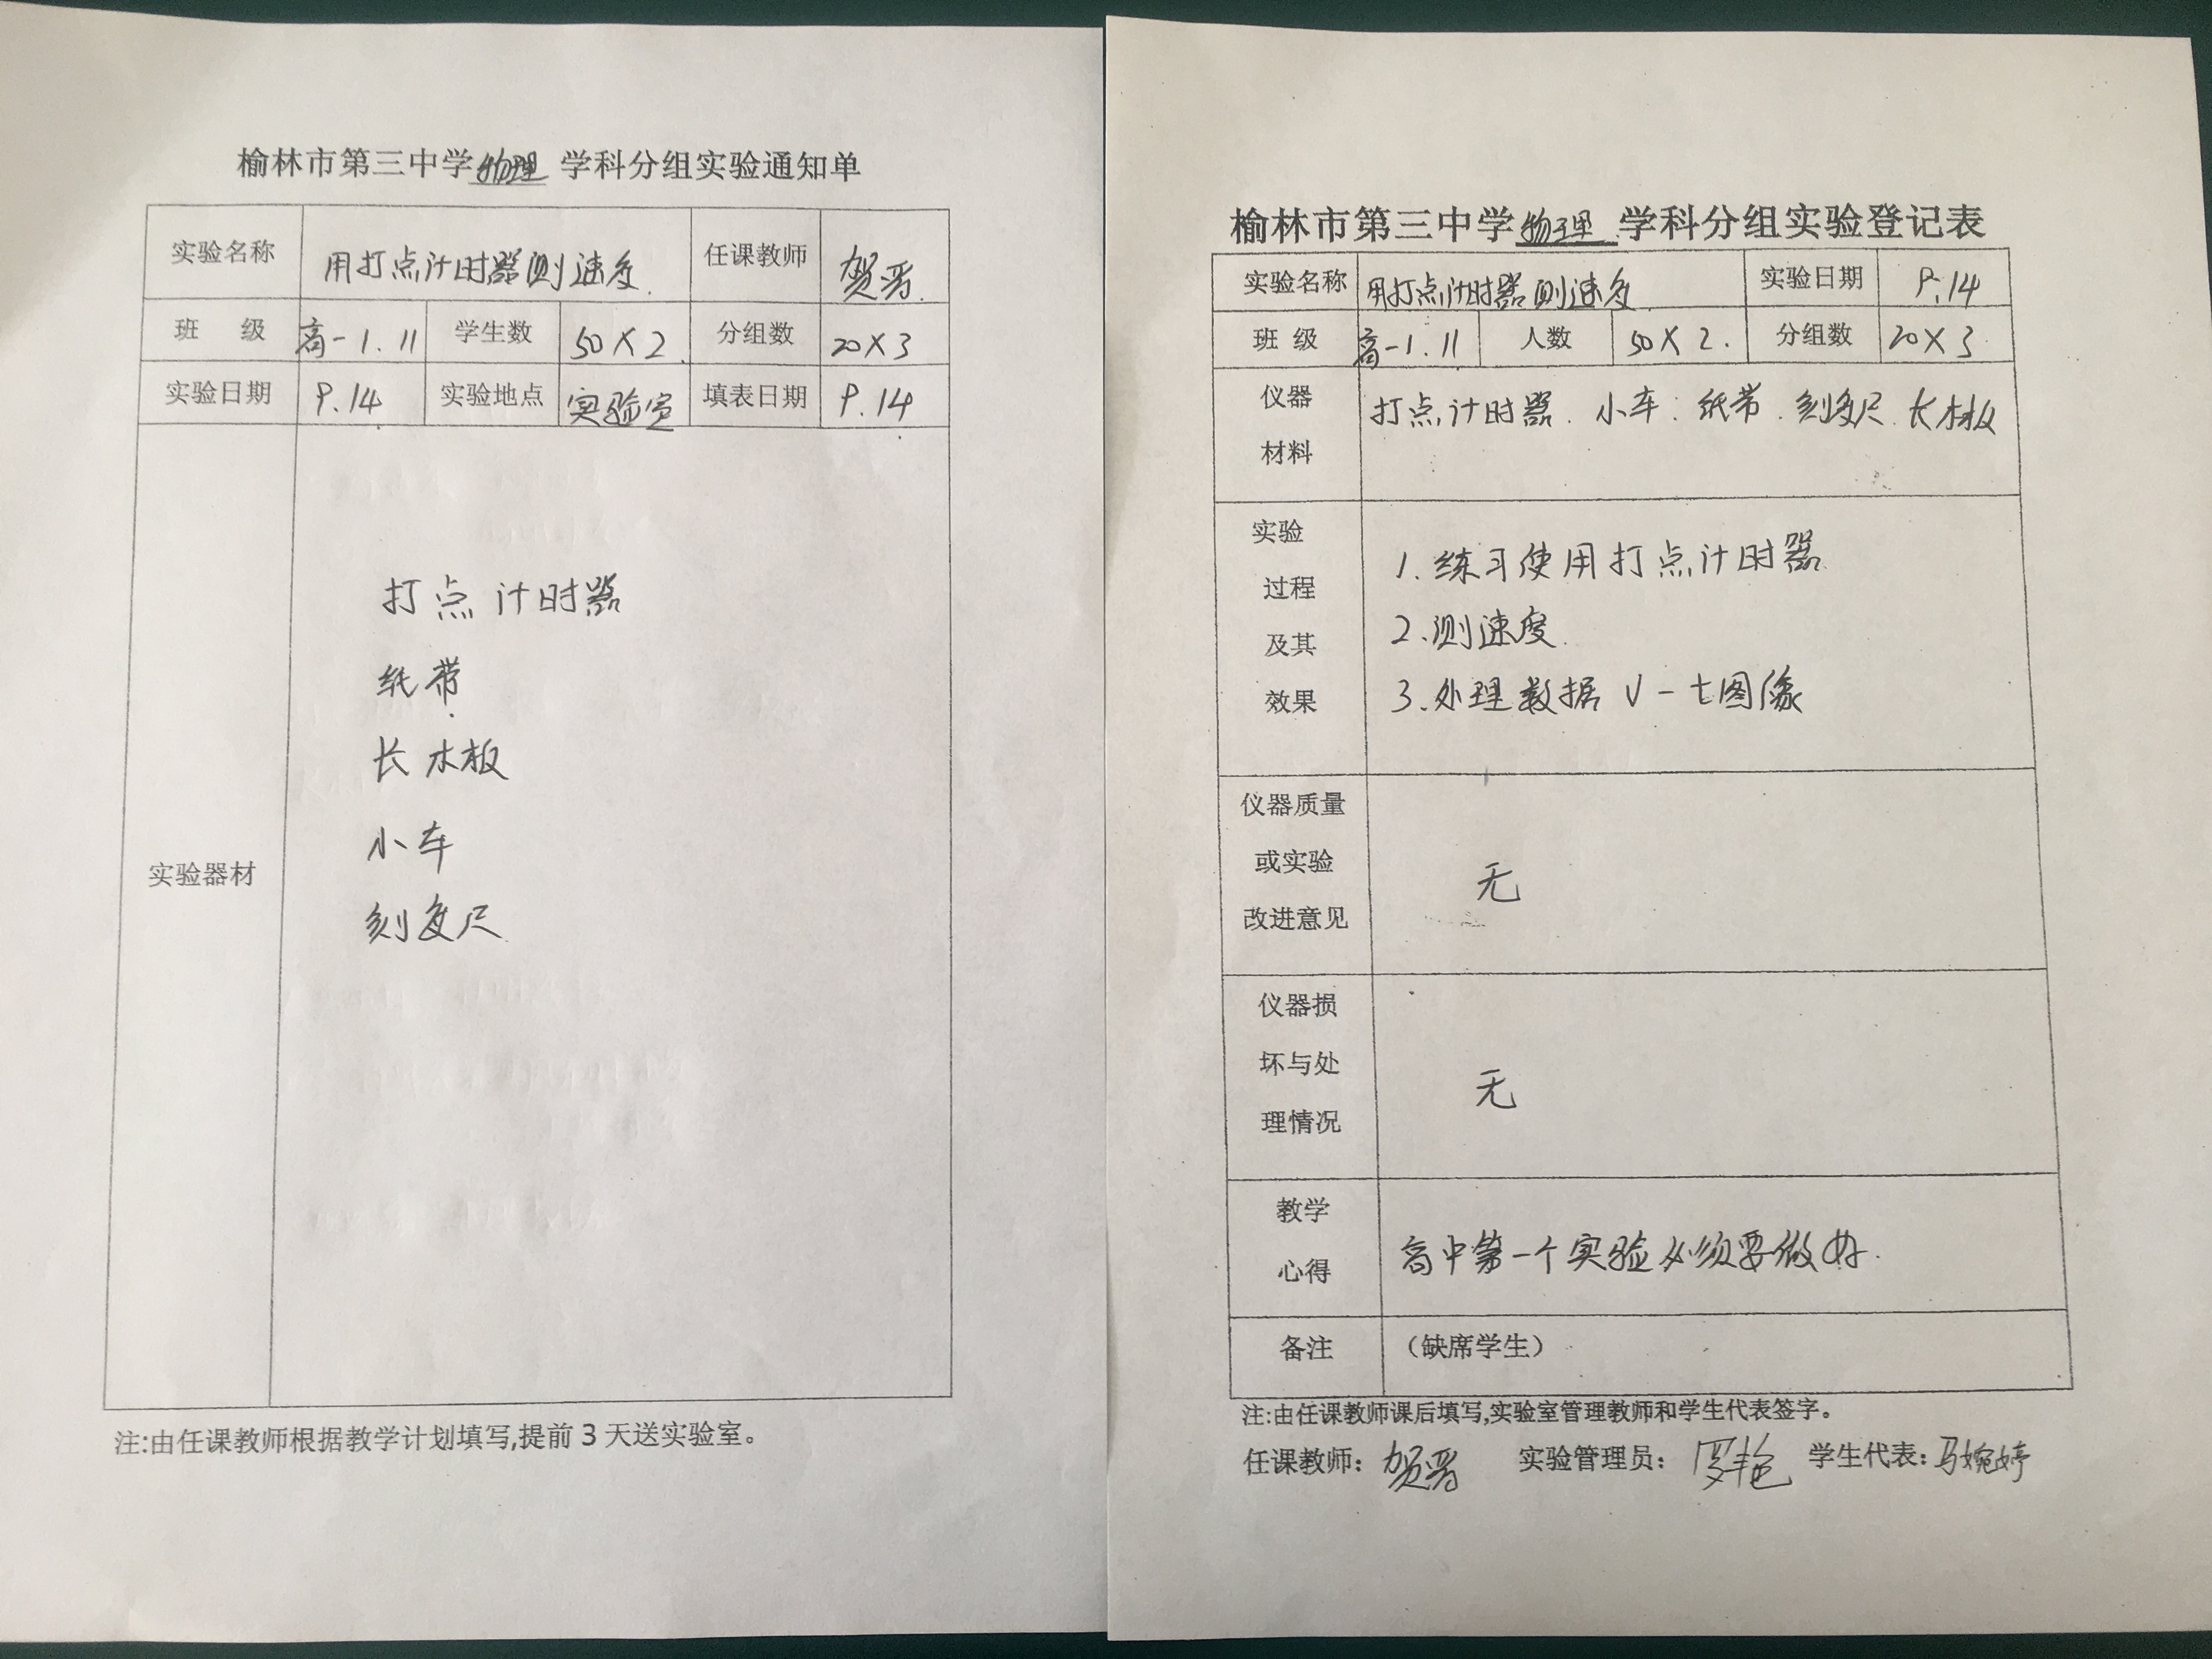 榆林市第三中学物理 学科分组实验通知单
实验名称 用打点计时器测速度. 任课教师 贺晋.
班 级 高一1.11 学生数 50×2. 分组数 20×3
实验日期 9.14 实验地点 实验室 填表日期 9.14
打点计时器
纸带
长木板
小车
实验器材
刻度尺
注:由任课教师根据教学计划填写,提前 3 天送实验室。
榆林市第三中学物理 学科分组实验登记表
实验名称 用打点计时器测速度 实验日期 9.14
班 级 高一1.11 人数 50×2. 分组数 20×3
仪器 打点计时器.小车.纸带.刻度尺.长木板
材料
实验 1.练习使用打点计时器
过程
及其 2.测速度.
效果 3.处理数据 V-t图像
仪器质量
或实验 无
改进意见
仪器损
坏与处 无
理情况
教学
心得 高中第一个实验必须要做好.
备注 （缺席学生）
注:由任课教师课后填写,实验室管理教师和学生代表签字。
任课教师：贺晋 实验管理员：罗艳 学生代表：马婉婷